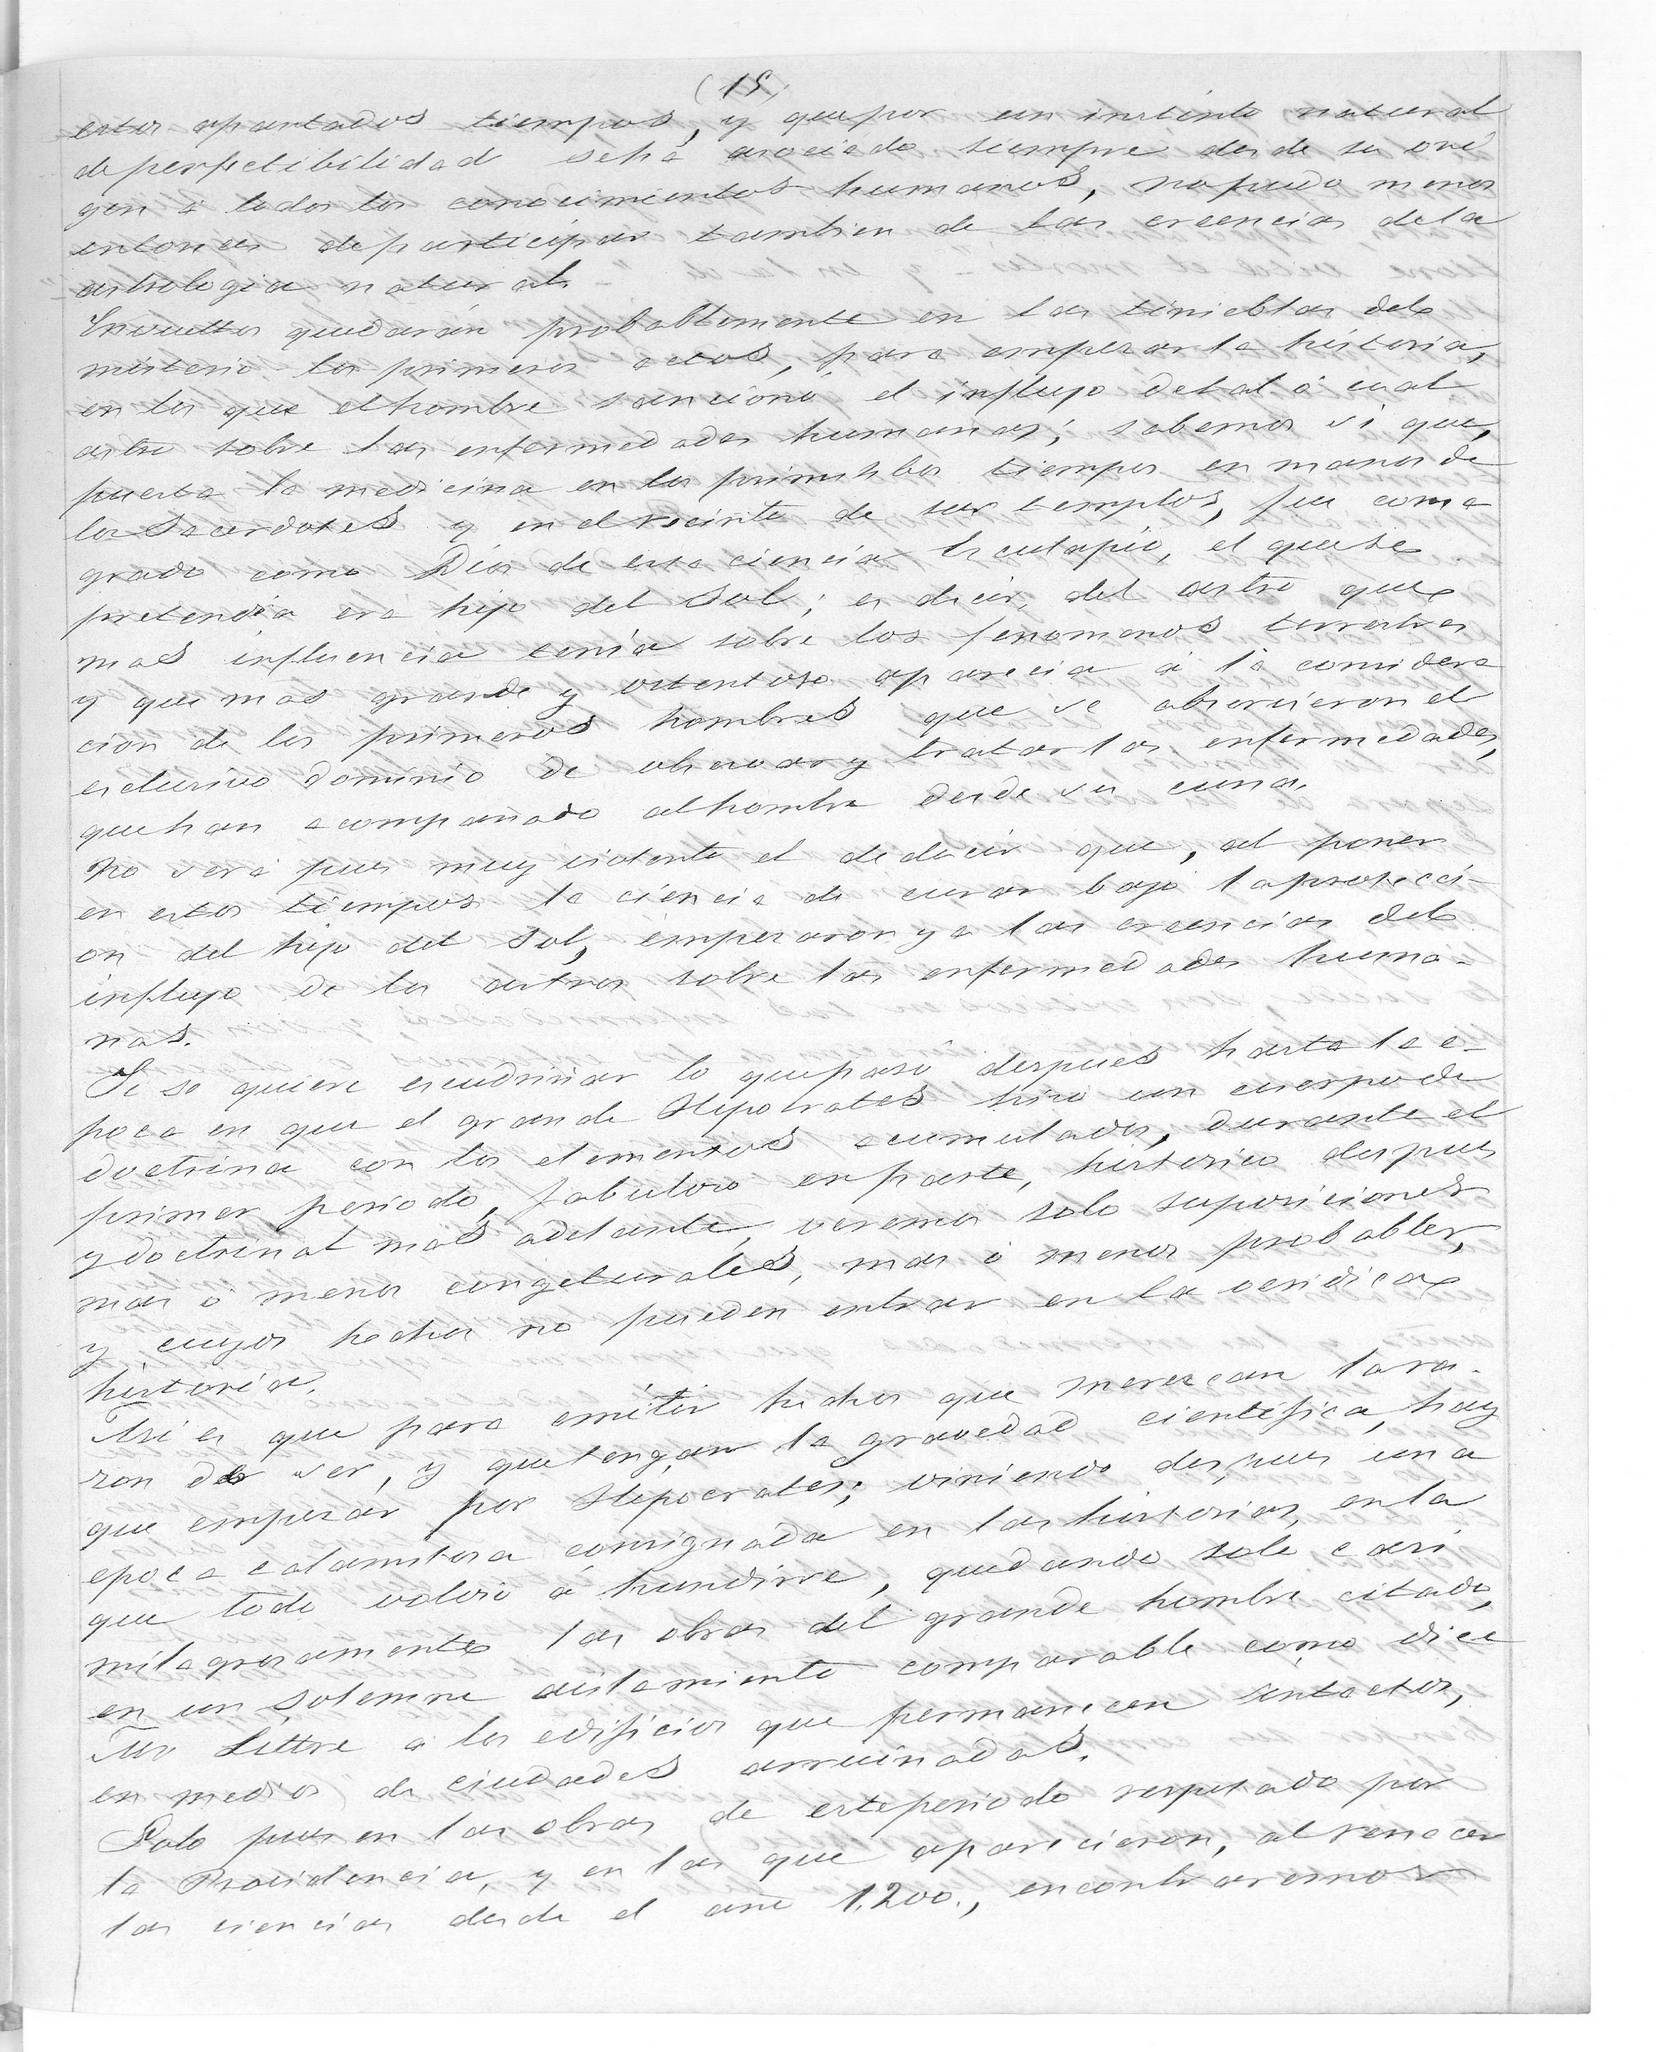 (15)
estos apartados tiempos, y que por un instinto natural
de perfectibilidad se ha asociado siempre desde su orí
gen á todos los conocimientos humanos, no pudo menos
entonces de participar tambien de las creencias de la
astrologia natural.
Envueltos quedarán probablemente en las tinieblas del
misterio los primeros actos, para empezar la história,
en los que el hombre sancionó el influjo de tal ó cual
astro sobre las enfermedades humanas; sabemos si que,
puesta la medicina en los primitibos tiempos en manos de
los Sacerdotes y en el recinto de sus templos, fue consa
grado como Dios de esta ciencia Esculapio, el que se
pretendia era hijo del Sol; es decir, del astro que
mas influencia tenía sobre los fenomenos terrestres
y que mas grande y ostentoso aparecia á la considera
cion de los primeros hombres que se abrocieron el
esclusivo dominio de observar y tratar las enfermedades,
que han acompañado al hombre desde su cuna.
No será pues muy violento el deducir que, al poner
en estos tiempos la ciencia de curar bajo la protecci-
on del hijo del Sol, empezaron ya las creencias del
influjo de los astros sobre las enfermedades huma-
nas.
Si se quiere escudriñar lo que pasó despues hasta la e-
poca en que el grande Hipocrates hizo un cuerpo de
doctrina con los elementos acumulados, durante el
primer periodo, fabuloso en parte, historico despues
y doctrinal mas adelante, veremos solo suposiciones
mas ó menos congeturales, mas ó menos probables,
y cuyos hechos no pueden entrar en la veridica
história.
Asi es que para emitir hechos que merezcan la ra-
zon de ser, y que tengan la gravedad cientifica, hay
que empezar por Hipocrates; viniendo despues una
epoca calamitosa consignada en las historias, en la
que todo volvió á hundirse, quedando solo casi
milagrosamente las obras del grande hombre citado,
en un solemne aislamiento comparable como dice
Mr Littre á los edificios que permanecen intactos,
en medios de ciudades arruinadas.
Solo pues en las obras de este periodo respetado por
la Providencia, y en las que aparecieron, al renacer
las ciencias desde el año 1.200., encontraremos